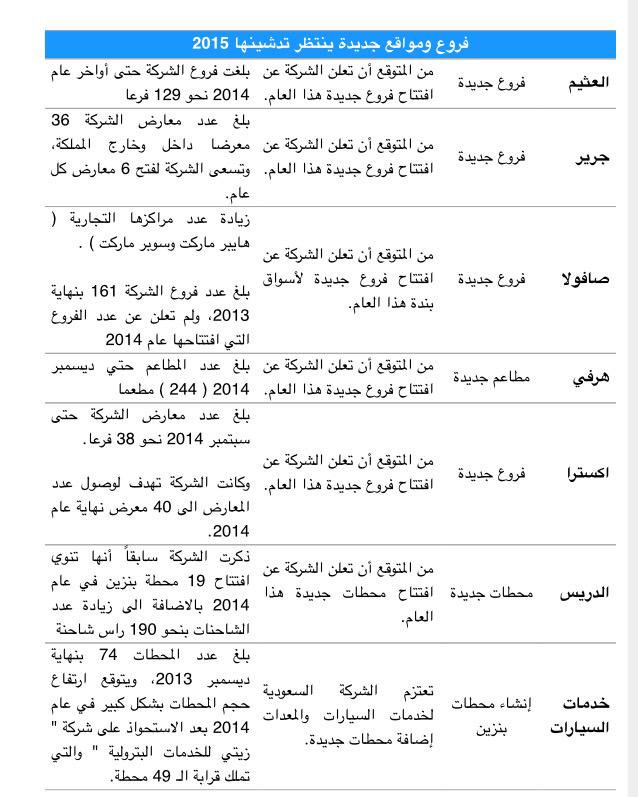 فروع ومواقع جديدة ينتظر تدشينها 2015
العثيم
فروع جديدة
من المتوقع أن تعلن الشركة عن
افتتاح فروع جديدة هذا العام.
بلغت فروع الشركة حتى أواخر عام
2014 نحو 129 فرعا
جرير
فروع جديدة
من المتوقع أن تعلن الشركة عن
افتتاح فروع جديدة هذا العام.
بلغ عدد معارض الشركة 36
معرضا داخل وخارج المملكة،
وتسعى الشركة لفتح 6 معارض كل
عام.
صافولا
فروع جديدة
من المتوقع أن تعلن الشركة عن
افتتاح فروع جديدة لأسواق
بندة هذا العام.
زيادة عدد مراكزها التجارية (
هايبر ماركت وسوبر ماركت ) .
بلغ عدد فروع الشركة 161 بنهاية
2013، ولم تعلن عن عدد الفروع
التي افتتاحها عام 2014
هرفي
مطاعم جديدة
من المتوقع أن تعلن الشركة عن
افتتاح فروع جديدة هذا العام.
بلغ عدد المطاعم حتي ديسمبر
2014 ( 244 ) مطعما
اكسترا
فروع جديدة
من المتوقع أن تعلن الشركة عن
افتتاح فروع جديدة هذا العام.
بلغ عدد معارض الشركة حتى
سبتمبر 2014 نحو 38 فرعا.
وكانت الشركة تهدف لوصول عدد
المعارض الى 40 معرض نهاية عام
2014.
الدريس
محطات جديدة
من المتوقع أن تعلن الشركة عن
افتتاح محطات جديدة هذا
العام.
ذكرت الشركة سابقاً أنها تنوي
افتتاح 19 محطة بنزين في عام
2014 بالاضافة الى زيادة عدد
الشاحنات بنحو 190 راس شاحنة
خدمات
السيارات
إنشاء محطات
بنزين
تعتزم الشركة السعودية
لخدمات السيارات والمعدات
إضافة محطات جديدة.
بلغ عدد المحطات 74 بنهاية
ديسمبر 2013، ويتوقع ارتفاع
حجم المحطات بشكل كبير في عام
2014 بعد الاستحواذ على شركة "
زيتي للخدمات البترولية " والتي
تملك قرابة الـ 49 محطة.